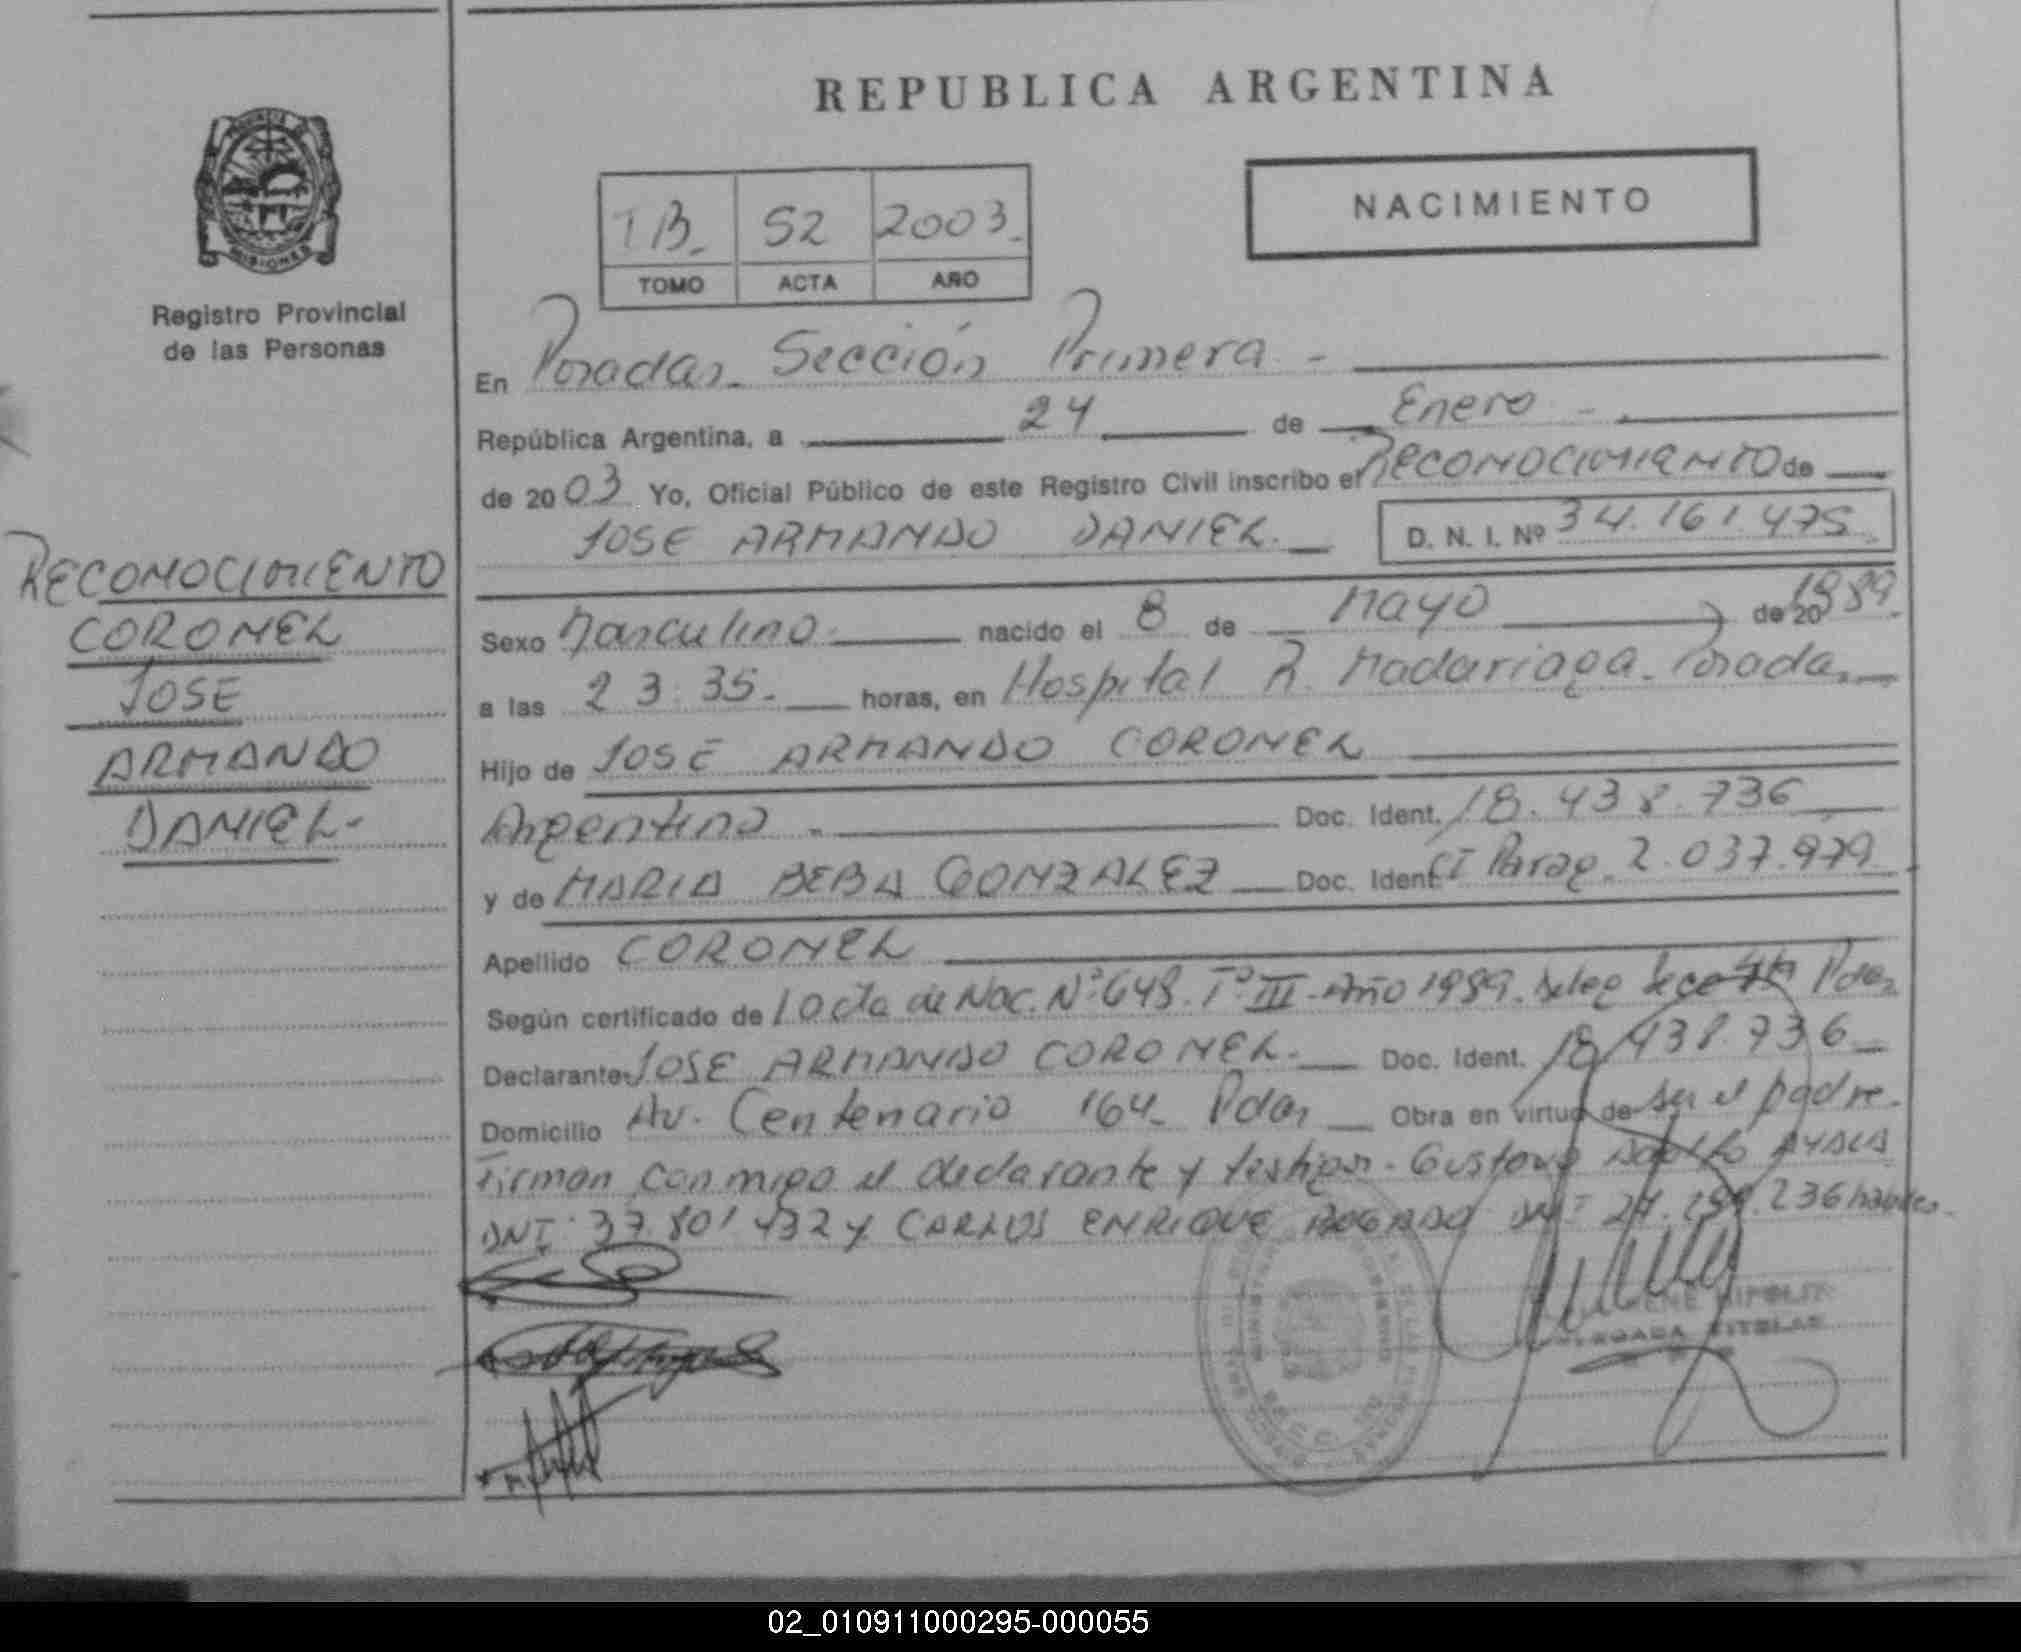 REPUBLICA ARGENTINA
NACIMIENTO
PROVINCIA DE
MISIONES
Registro Provincial
de las Personas
TB. 52 2003.
TOMO ACTA AÑO
En Posadas. Sección Primera -
República Argentina, a 24 de Enero -.
de 2003 Yo, Oficial Público de este Registro Civil inscribo el RECONOCIMIENTO de
JOSE ARMANDO DANIEL. D. N. I. Nº 34.161.475
RECONOCIMIENTO
CORONEL
JOSE
ARMANDO
DANIEL.
Sexo Masculino. nacido el 8 de Mayo de 20 1989.
a las 23:35. horas, en Hospital R. Madariaga. Posadas
Hijo de JOSE ARMANDO CORONEL
Argentino. Doc. Ident. 18.438.736
y de MARIA BEBA GONZALEZ Doc. Ident. CI Parag. 2.037.979
Apellido CORONEL
Según certificado de 1 acta de Nac. Nº 648. Tº III. Año 1989. Deleg Secc 4ta Pdas
Declarante JOSE ARMANDO CORONEL. Doc. Ident. 18.438.736
Domicilio Av. Centenario 164. Pdas Obra en virtud de ser el padre.
Firman conmigo el declarante y testigos. Gustavo Adolfo AYALA
DNI: 37.801.432 y CARLOS ENRIQUE BOGADO DNI 236 hábiles.
RENE HIPOLIT
DELEGADA TITULAR
02_010911000295-000055